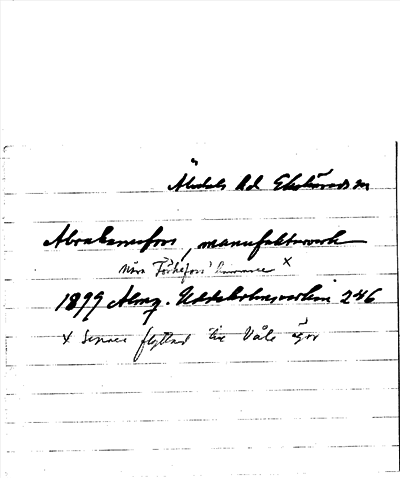 Älvdals hd Ekshärads sn
Abrahamsfors, manufakturverk
nära Föskefors' hammare x
1899 Almq. Uddeholmsverken 246
x Senare flyttad till Våle ägor